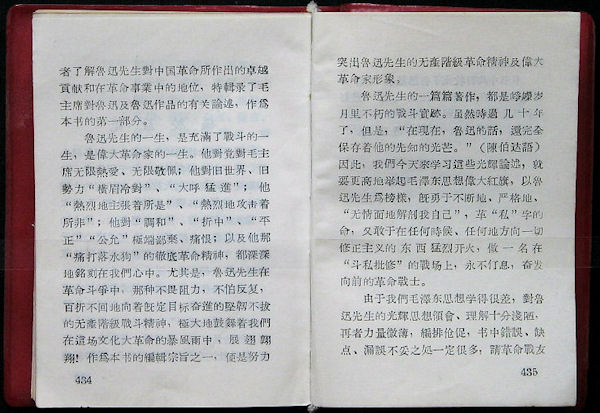 者了解魯迅先生對中国革命所作出的卓越
貢献和在革命事業中的地位，特輯录了毛
主席對魯迅及魯迅作品的有关論述，作爲
本书的第一部分。
魯迅先生的一生，是充滿了戰斗的一
生，是偉大革命家的一生。他對党對毛主
席无限熱爱、无限敬佩；他對旧世界、旧
勢力“横眉冷對”、“大呼猛進”；他
“熱烈地主張着所是”、“熱烈地攻击着
所非”；他對“調和”、“折中”、“平
正”“公允”極端鄙棄、痛恨；以及他那
“痛打落水狗”的徹底革命精神，都深深
地銘刻在我們心中。尤其是，魯迅先生在
革命斗爭中，那种不畏阻力，不怕反复，
百折不回地向着既定目标奋進的堅靭不拔
的无產階級戰斗精神，極大地鼓舞着我們
在這場文化大革命的暴風雨中，展翅翱
翔！作爲本书的編輯宗旨之一，便是努力
434
突出魯迅先生的无產階級革命精神及偉大
革命家形象。
魯迅先生的一篇篇著作，都是崢嶸岁
月里不朽的戰斗實跡。虽然時過几十年
了，但是，“在現在，魯迅的話，還完全
保存着他的先知的光芒。”（陳伯达語）
因此，我們今天來学習這些光輝論述，就
要更高地举起毛澤东思想偉大红旗，以魯
迅先生爲榜樣，旣勇于不断地、严格地、
“无情面地解剖我自己”，革“私”字的
命，又敢于在任何時候、任何地方向一切
修正主义的东西猛烈开火，做一名在
“斗私批修”的戰场上，永不仃息，奋发
向前的革命戰士。
由于我們毛澤东思想学得很差，對魯
迅先生的光輝思想領會、理解十分淺陋，
再者力量微薄，編排伧促，书中錯誤、缺
点、漏誤不妥之处一定很多，請革命戰友
435